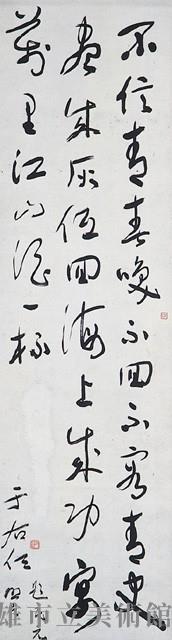 不信青春喚不回不容青史
盡成灰低回海上成功宴
萬里江山酒一杯
于右任
雄市立美術館